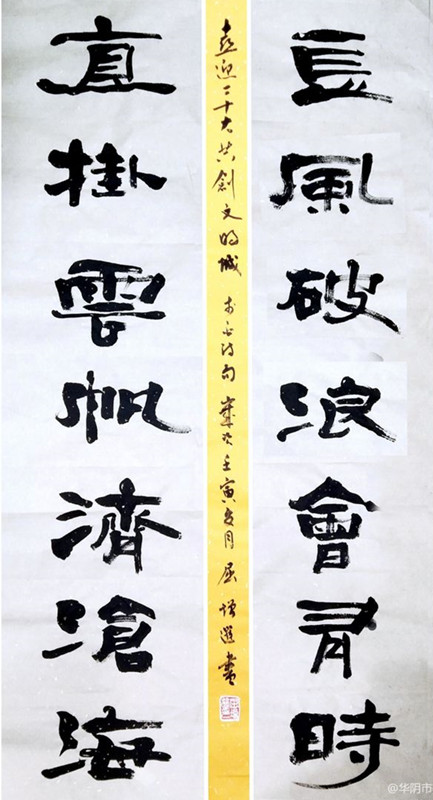 長風破浪會有時
直掛雲帆濟滄海
喜迎二十大共創文明城 李白诗句 歲次壬寅夏月 屈增選書
@华阴市